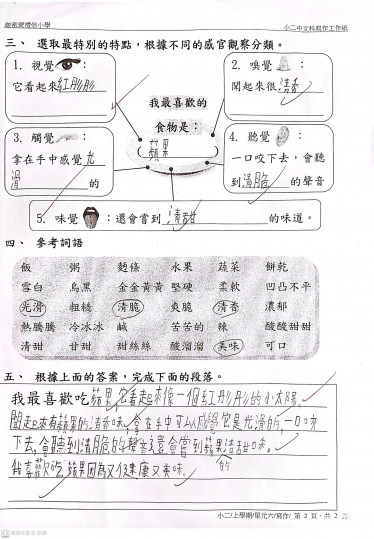 迦密愛禮信小學 小二中文科寫作工作紙
三、 選取最特別的特點，根據不同的感官觀察分類。
1. 視覺 ：
它看起來紅彤彤
2. 嗅覺 ：
聞起來很清香
我最喜歡的
食物是：
(蘋果)
3. 觸覺 ：
拿在手中感覺光
滑 的
4. 聽覺 ：
一口咬下去，會聽
到清脆 的聲音
5. 味覺 ：還會嘗到 清甜 的味道。
四、 參考詞語
飯 粥 麪條 水果 蔬菜 餅乾
雪白 烏黑 金金黃黃 堅硬 柔軟 凹凸不平
光滑 粗糙 清脆 爽脆 清香 濃郁
熱騰騰 冷冰冰 鹹 苦苦的 辣 酸酸甜甜
清甜 甘甜 甜絲絲 酸溜溜 美味 可口
五、 根據上面的答案，完成下面的段落。
我最喜歡吃蘋果，它看起來像一個紅彤彤的小太陽。
聞起來有蘋果的清香味，拿在手中可以感覺它是光滑的，一口咬
下去，會聽到清脆的聲音，還會嘗到蘋果的清甜味。
我喜歡吃蘋果因為又健康又美味。
小二/上學期/單元六/寫作/ 第 2 頁，共 2 頁